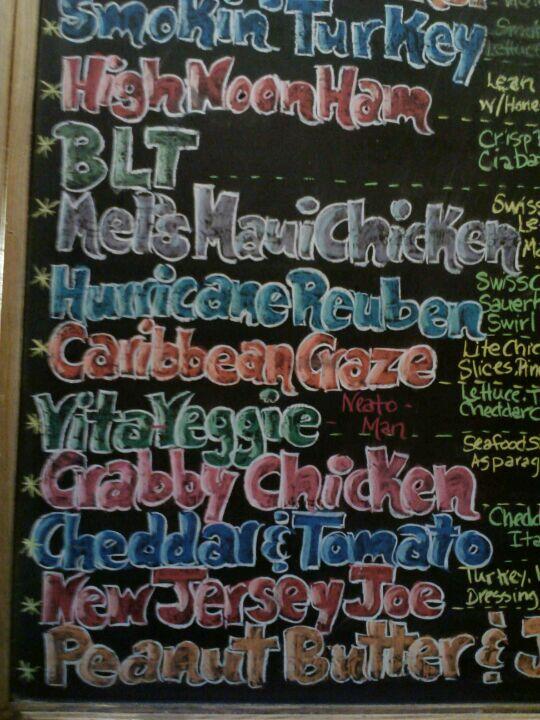 Smokin Turkey
Lettuce
High Noon Ham
Lean
W/Hone
BLT
Crisp
Ciaba
Mel's Maui Chicken
Swiss
Le
Hurricane Reuben
Swiss C
Sauerk
Swirl
Caribbean Craze
Lite Chic
Slices, Pin
Vita-Yeggie
Neato-
Man
Lettuce, T
Cheddar C
Crabby Chicken
Seafood S
Asparag
Cheddar & Tomato
Chedd
Ita
New Jersey Joe
Turkey,
Dressing
Peanut Butter & J